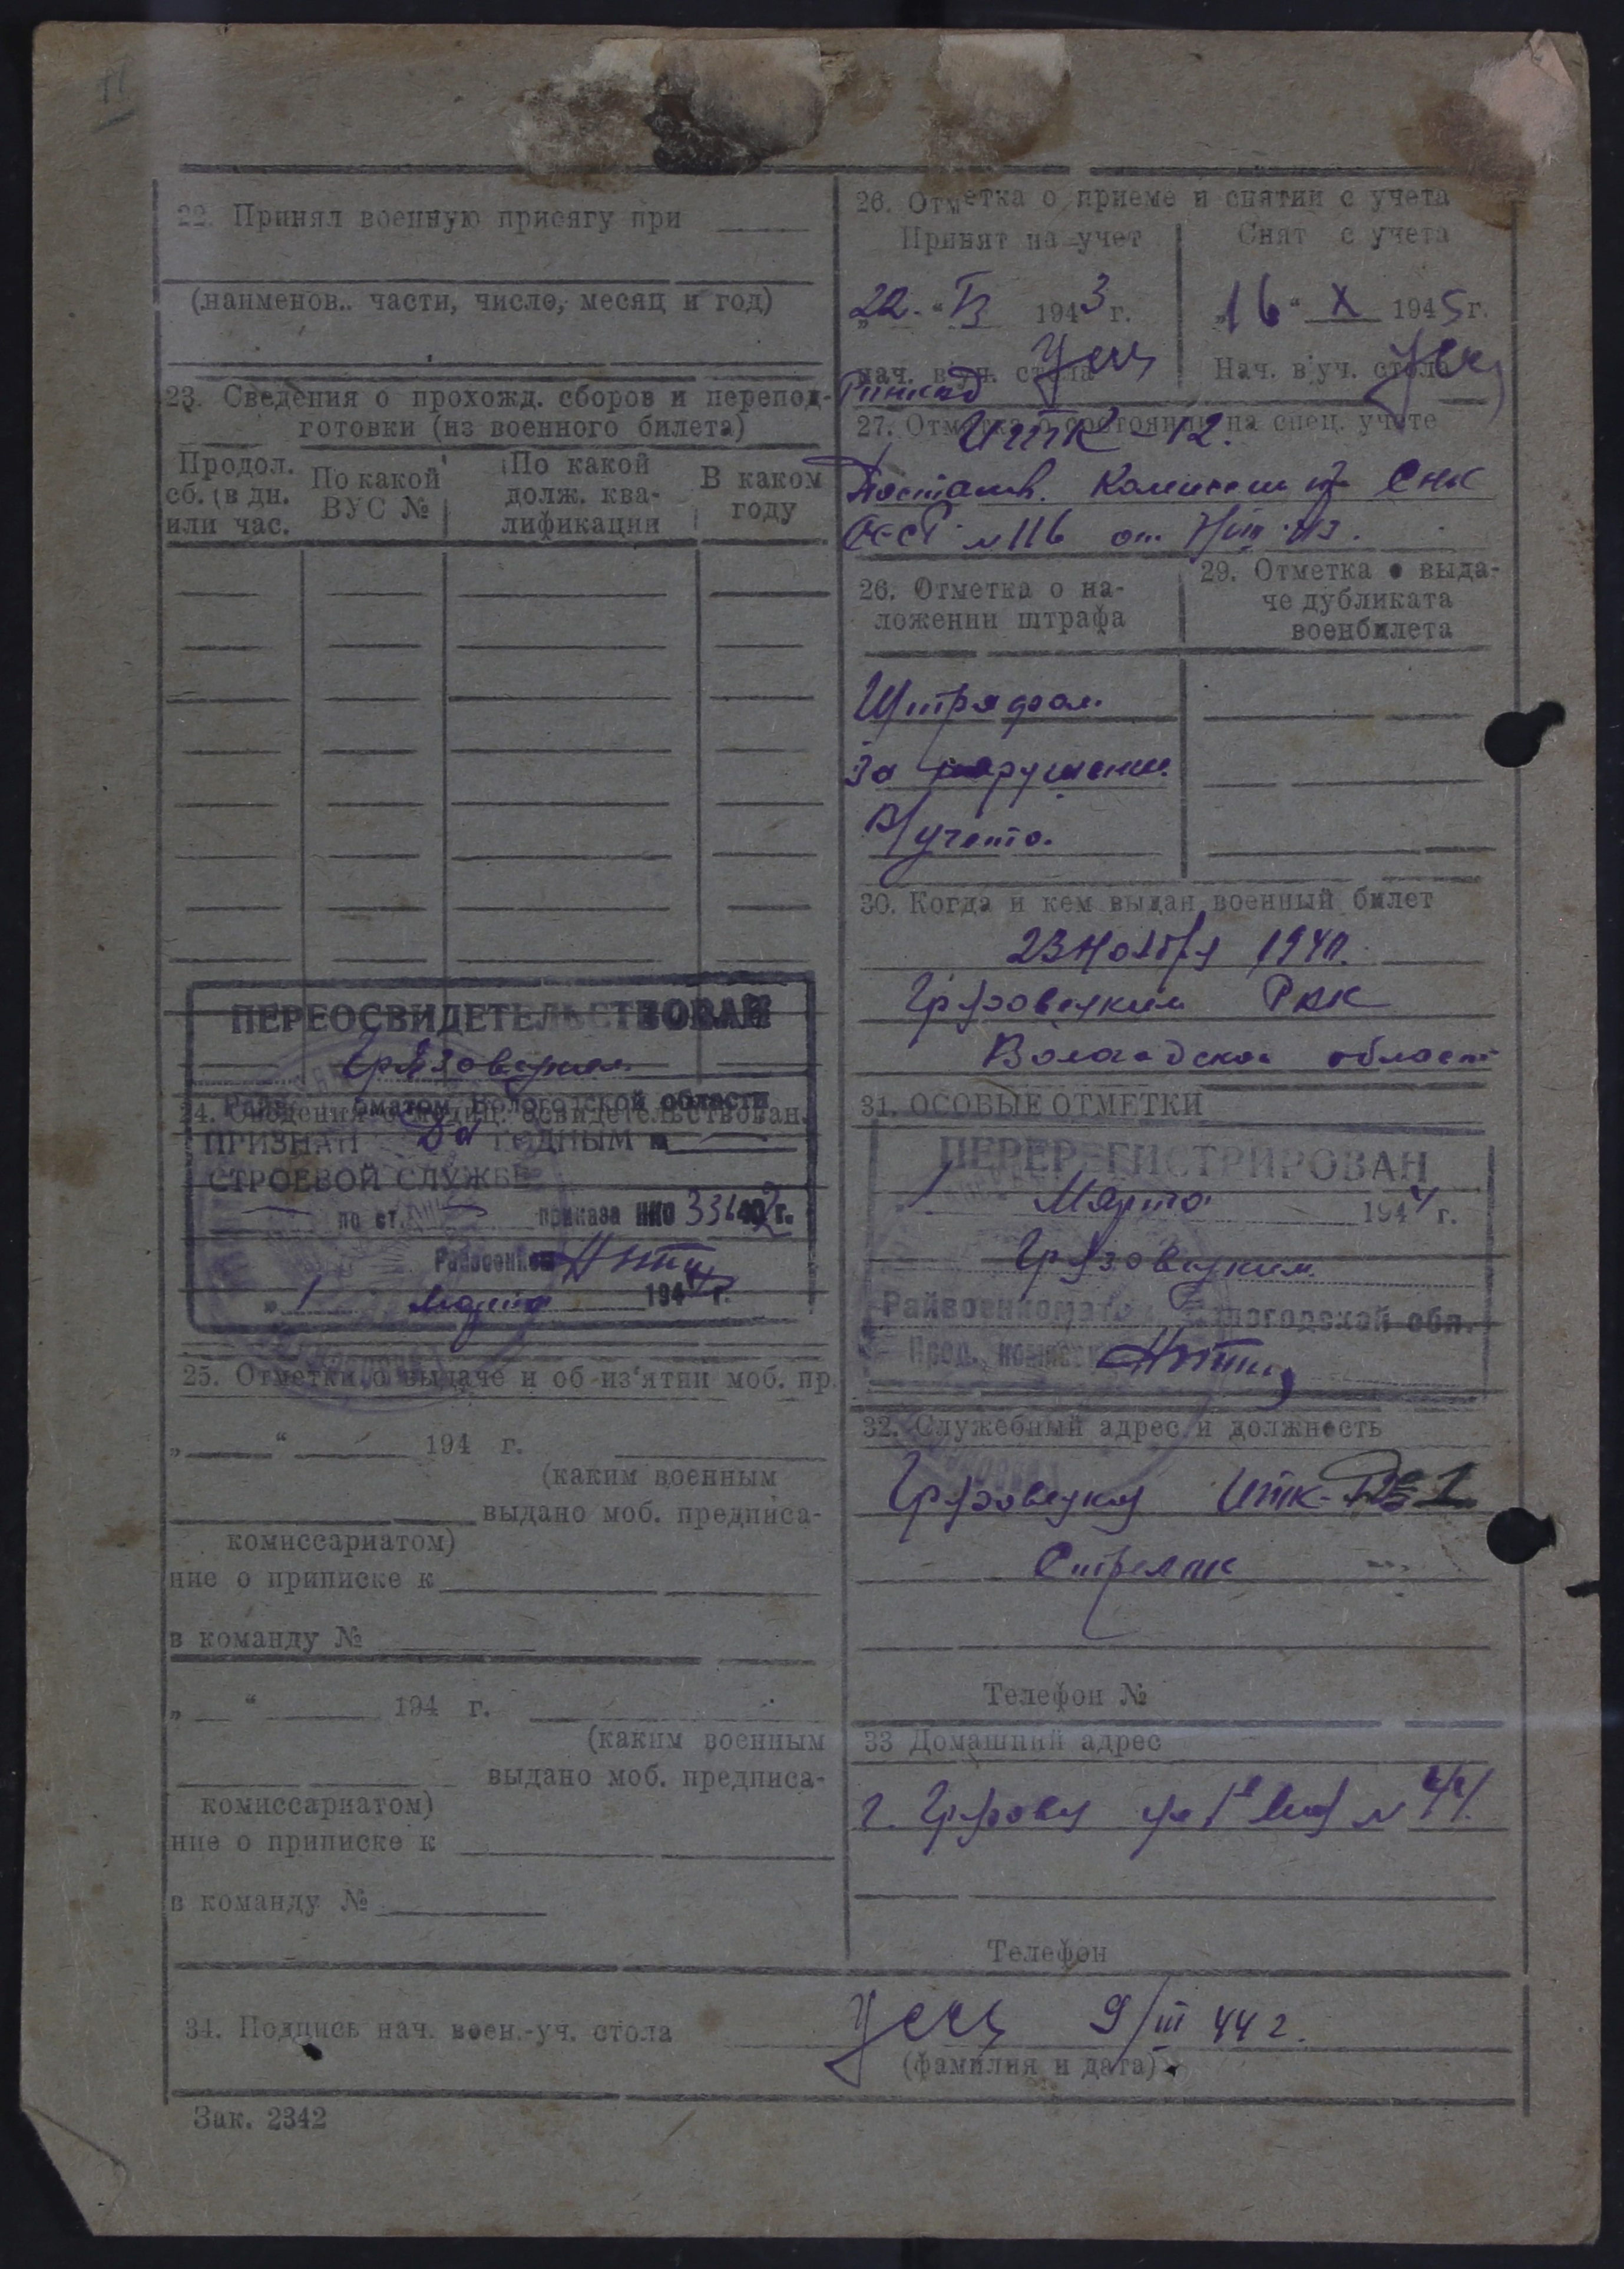 11
22. Принял военную присягу при
(наименов.. части, число, месяц и год)
23. Сведения о прохожд. сборов и перепод-
готовки (из военного билета)
Продол.
сб. (в дн.
или час.
По какой
ВУС №
По какой
долж. ква-
лификации
В каком
году
ПЕРЕОСВИДЕТЕЛЬСТВОВАН
Грязовецким
Райвоенкоматом Вологодской области
24. Сведения о медиц. освидетельствован.
ПРИЗНАН ГОДНЫМ к
СТРОЕВОЙ СЛУЖБЕ
по ст. приказа НКО 336 42 г.
Райвоенком
„ 1 Марта 1944 г.
25. Отметки о выдаче и об из'ятии моб. пр.
„ “ 194 г.
(каким военным
выдано моб. предписа-
комиссариатом)
ние о приписке к
в команду №
„ “ 194 г.
(каким военным
выдано моб. предписа-
комиссариатом)
ние о приписке к
в команду №
26. Отметка о приеме и снятии с учета
Принят на учет
Снят с учета
„22“ 1943 г.
„16“ X 1945 г.
Нач. в.уч. стола
Нач. в.уч. стола
27. Отметка о состоянии на спец. учете
ИТК-12.
Постанов. Комиссии СНК
СССР №116 от
26. Отметка о на-
ложении штрафа
29. Отметка о выда-
че дубликата
военбилета
Штрафов.
За нарушение
В/учета.
30. Когда и кем выдан военный билет
23 Ноября 1940.
Грязовецким РВК
Вологодской област
31. ОСОБЫЕ ОТМЕТКИ
ПЕРЕРЕГИСТРИРОВАН
1 Марта 1944 г.
Грязовецким
Райвоенкомато Вологодской обл.
Пред. комисс
32. Служебный адрес и должность
Грязовецкая ИТК- №1
Стрелок
Телефон №
33 Домашний адрес
г. Грязовец ул №44.
Телефон
34. Подпись нач. воен.-уч. стола
9/III 44 г.
(фамилия и дата)
Зак. 2342